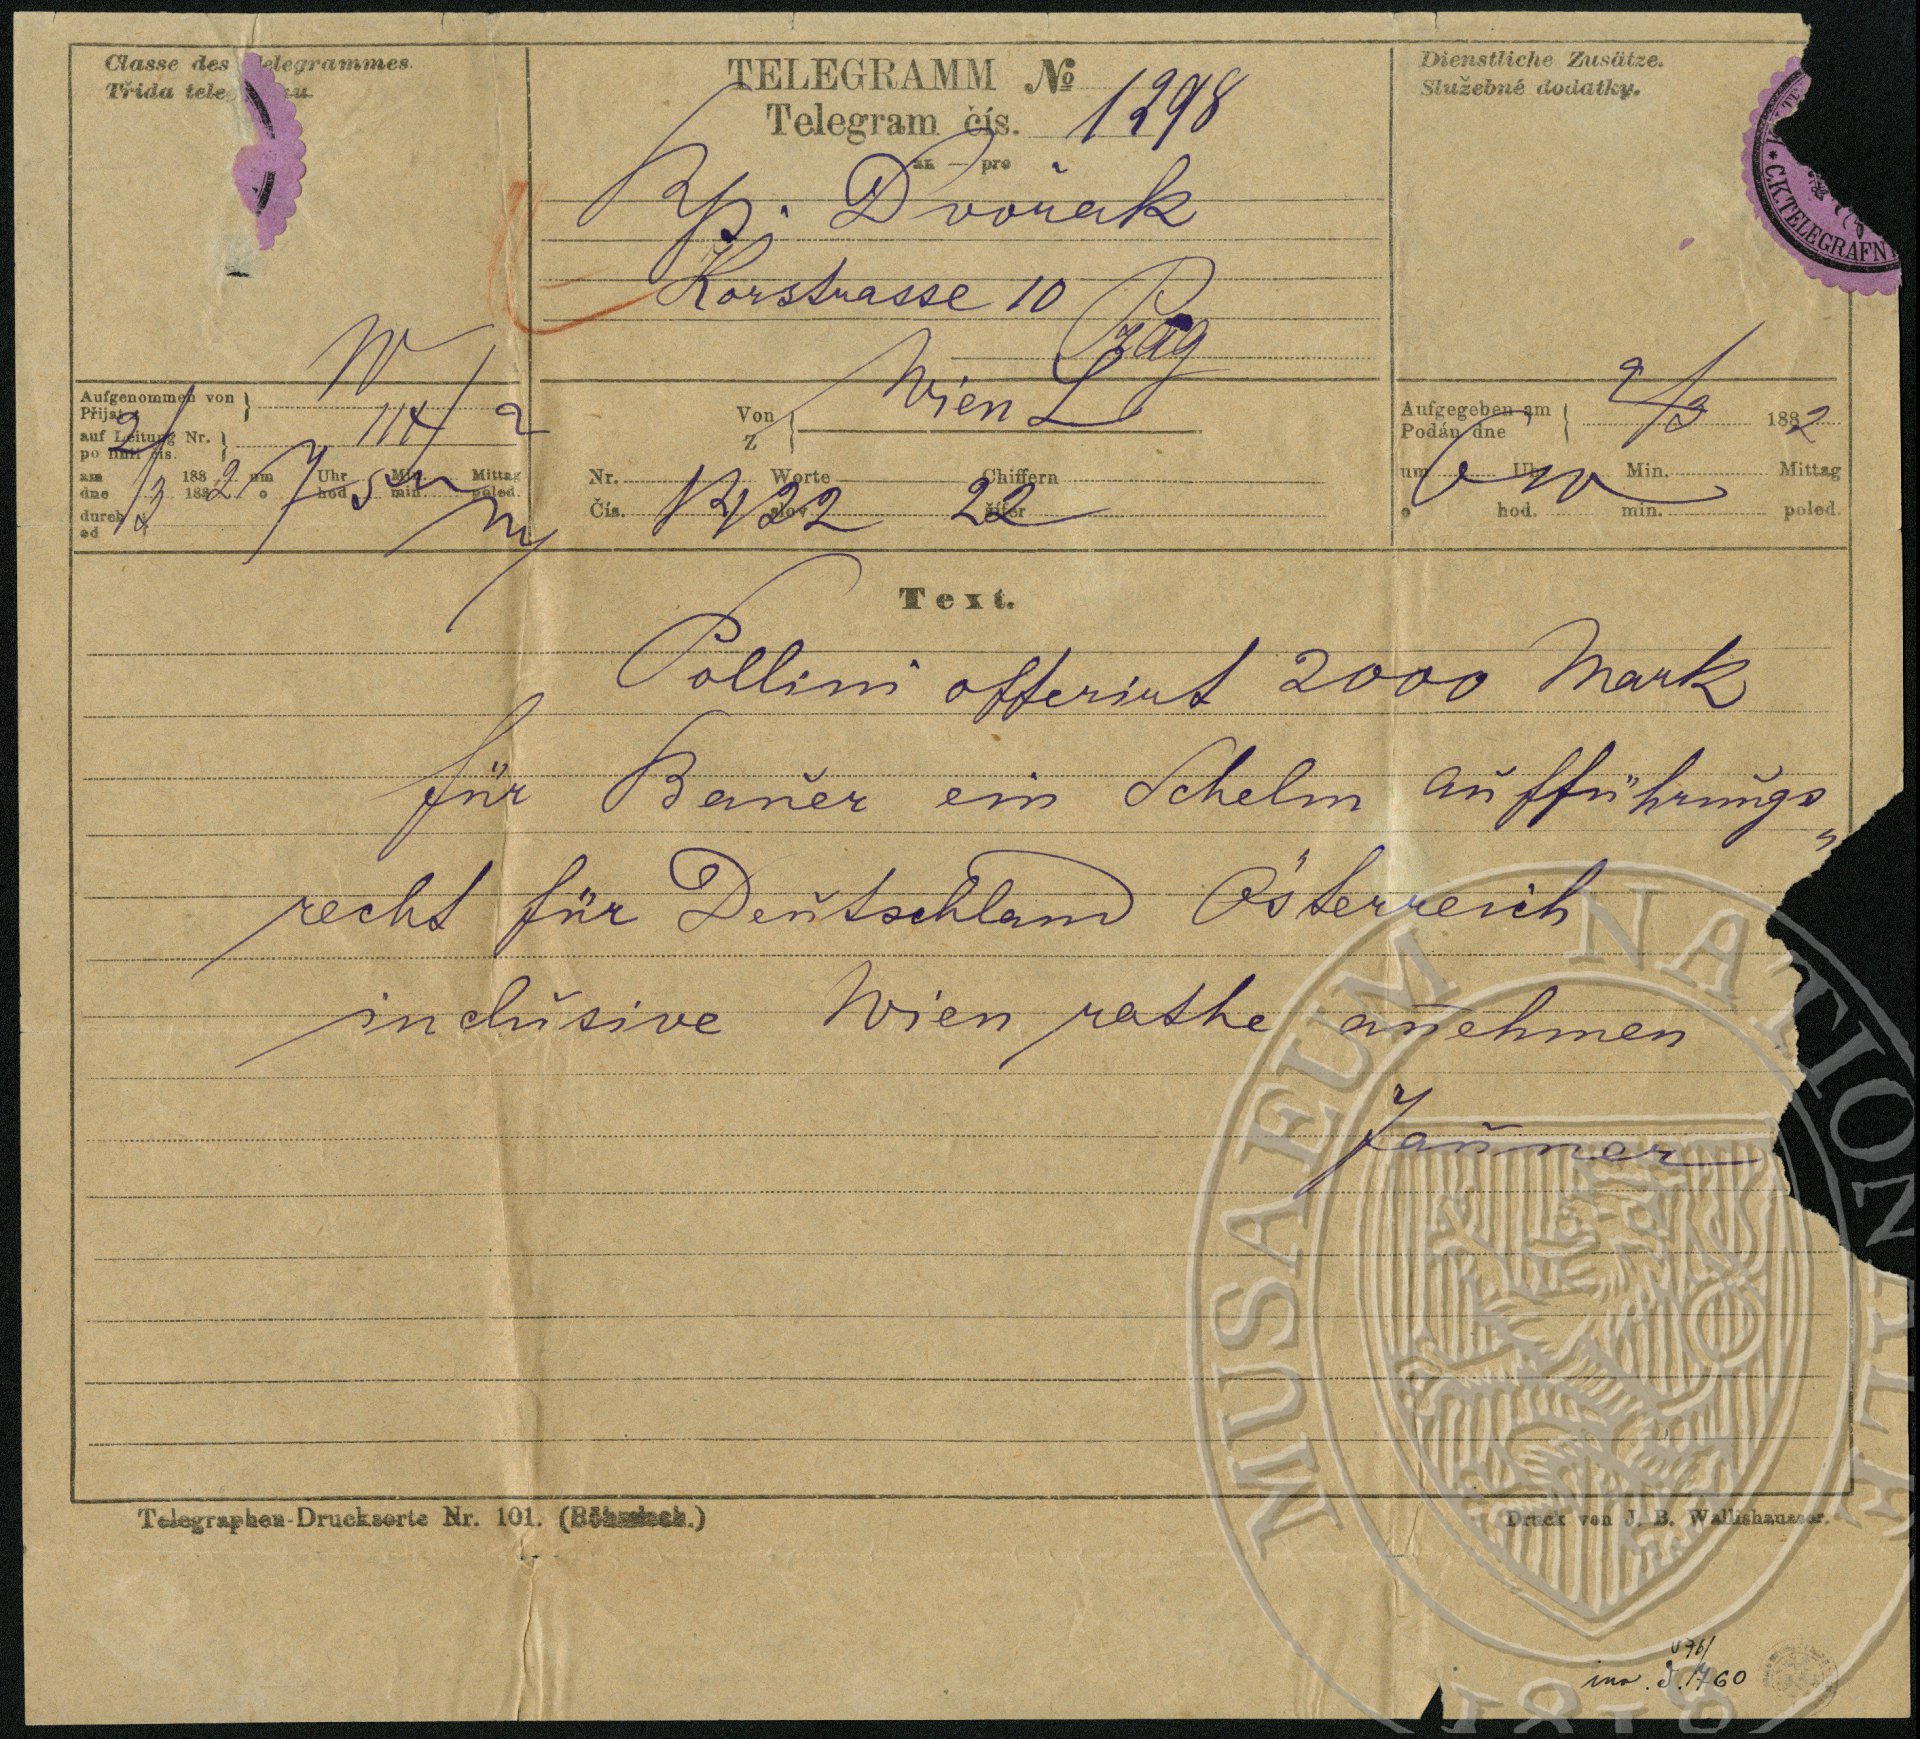 Classe des Telegrammes.
TELEGRAMM №
1298
Telegram čís.
an — pro
Dienstliche Zusätze.
Služebné dodatky.
C.K.TELEGRAFN
Rp. Dvořak
Korstrasse 10
Prag
Aufgenommen von
auf Leitung Nr.
114/2
am 188 2 um 7 Uhr 5 Min. Mittag
dne 188 o hod. min. poled.
durch
od
Von
Z
Wien L
Nr. Worte Chiffern
Čís. slov šifer
22 22
Aufgegeben am
Podán dne
2/3 1882
um Uhr Min. Mittag
o hod. min. poled.
Text.
Pollini offerirt 2000 Mark
für Bauer ein Schelm aufführungs
recht für Deutschland Österreich
inclusive Wien rathe anehmen
Jauner
Telegraphen-Drucksorte Nr. 101. (Böhmisch.)
Druck von J. B. Wallishausser.
MUSAEUM NATIONALE
1818